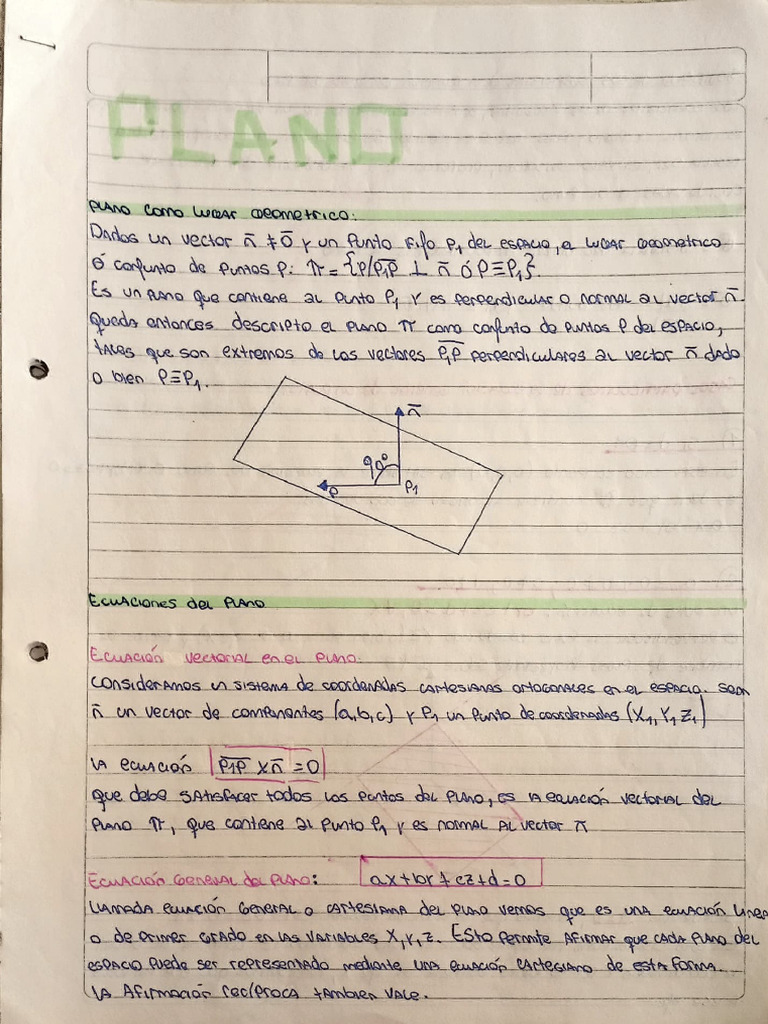 PLANO
PLANO COMO LUGAR GEOMETRICO:
DADOS UN VECTOR n̄ ≠ ō Y UN PUNTO FIJO P₁ DEL ESPACIO, EL LUGAR GEOMETRICO
Ó CONJUNTO DE PUNTOS P: π = {P/P̅₁P̅ ⊥ n̄ Ó P≡P₁}.
ES UN PLANO QUE CONTIENE AL PUNTO P₁ Y ES PERPENDICULAR O NORMAL AL VECTOR n̄.
QUEDA ENTONCES DESCRIPTO EL PLANO π COMO CONJUNTO DE PUNTOS P DEL ESPACIO,
TALES QUE SON EXTREMOS DE LOS VECTORES P̅₁P̅ PERPENDICULARES AL VECTOR n̄ DADO
O BIEN P≡P₁.
n̄
90°
P
P₁
ECUACIONES DEL PLANO
ECUACIÓN VECTORIAL EN EL PLANO:
CONSIDERAMOS UN SISTEMA DE COORDENADAS CARTESIANAS ORTOGONALES EN EL ESPACIO. SEAN
n̄ UN VECTOR DE COMPONENTES (a,b,c) Y P₁ UN PUNTO DE COORDENADAS (X₁,Y₁,Z₁)
LA ECUACIÓN P̅₁P̅ x n̄ = 0
QUE DEBE SATISFACER TODOS LOS PUNTOS DEL PLANO, ES LA ECUACIÓN VECTORIAL DEL
PLANO π, QUE CONTIENE AL PUNTO P₁ Y ES NORMAL AL VECTOR n̄
ECUACIÓN GENERAL DEL PLANO: ax+by+cz+d=0
LLAMADA ECUACIÓN GENERAL O CARTESIANA DEL PLANO VEMOS QUE ES UNA ECUACIÓN LINEAL
O DE PRIMER GRADO EN LAS VARIABLES X,Y,Z. ESTO PERMITE AFIRMAR QUE CADA PLANO DEL
ESPACIO PUEDE SER REPRESENTADO MEDIANTE UNA ECUACIÓN CARTESIANO DE ESTA FORMA.
LA AFIRMACIÓN RECÍPROCA TAMBIEN VALE.